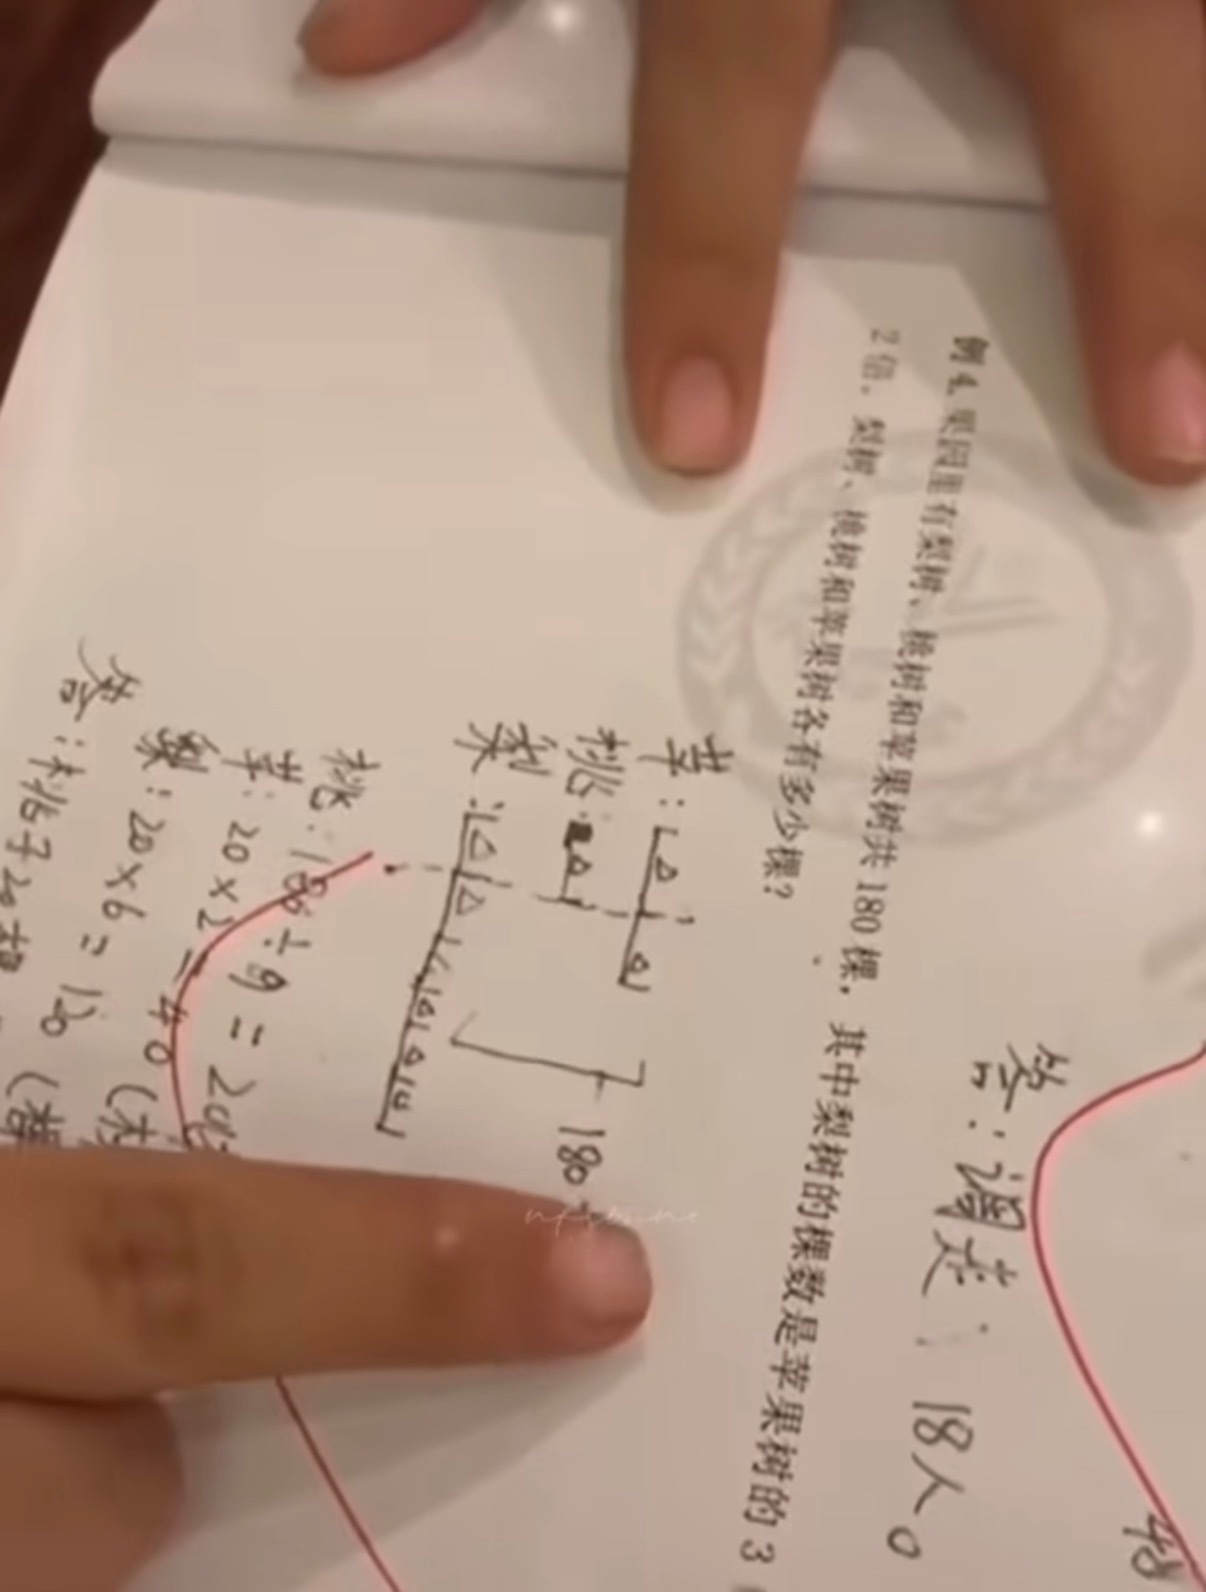 答：调走 18人。
48
例4. 果园里有梨树、桃树和苹果树共180棵，其中梨树的棵数是苹果树的3
2倍。梨树、桃树和苹果树各有多少棵？
苹：
桃：
梨：
180
桃：180÷9=20
苹：20×2=40（
梨：20×6=120（棵
答：桃子20棵